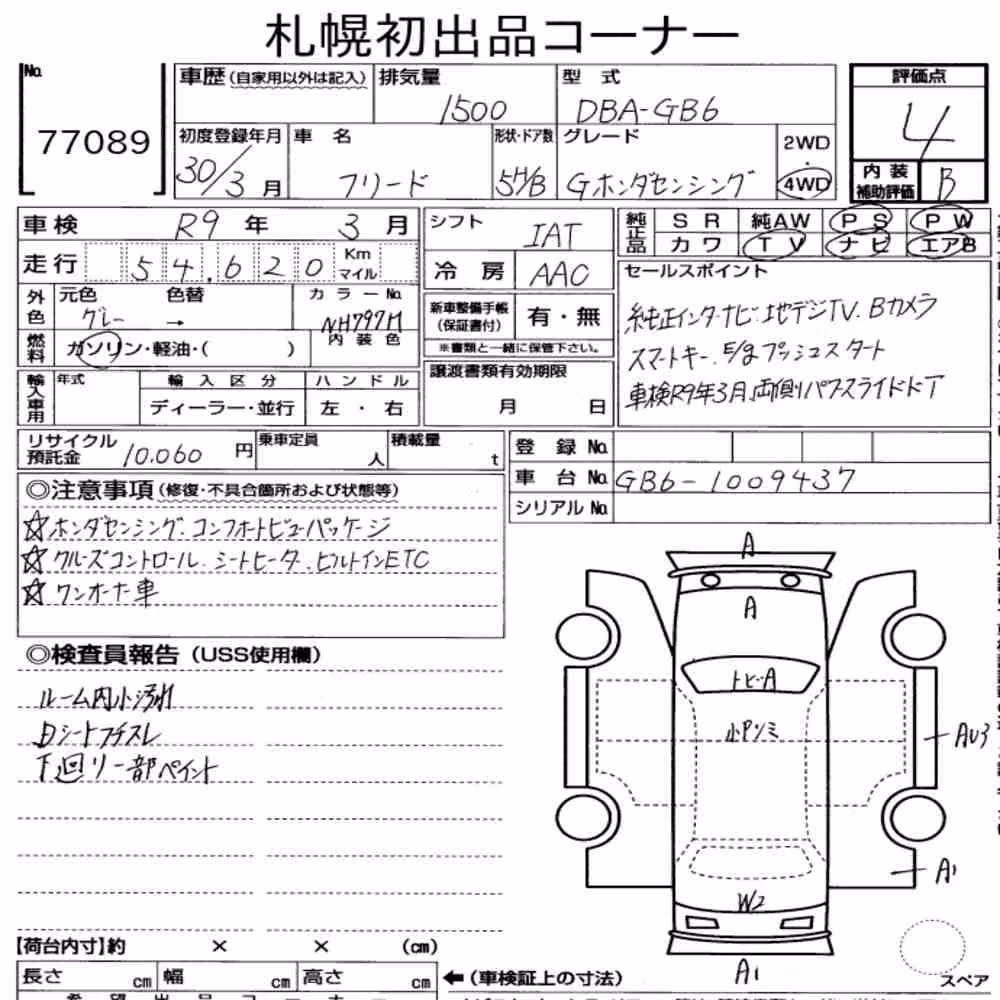 札幌初出品コーナー
No.
77089
車歴 (自家用以外は記入)
排気量
1500
型 式
DBA-GB6
評価点
4
初度登録年月
30/3 月
車 名
フリード
形状・ドア数
5H/B
グレード
Gホンダセンシング
2WD
・
4WD
内 装
補助評価
B
車検 R9 年 3 月
走行 54.620 Km
マイル
シフト
IAT
冷 房 AAC
純正品 SR 純AW PS PW
カワ TV ナビ エアB
外色 元色 色替 カラーNo.
グレー → NH797M
燃料 ガソリン・軽油・( ) 内装色
新車整備手帳
(保証書付)
有・無
※書類と一緒に保管下さい。
セールスポイント
純正インターナビ・地デジTV.Bカメラ
スマートキー.E/gプッシュスタート
車検R9年3月.両側パワスライドドア
輸入車用 年式 輸入区分 ハンドル
ディーラー・並行 左・右
譲渡書類有効期限
月 日
リサイクル
預託金 10.060 円
乗車定員 人
積載量 t
登 録 No.
車 台 No. GB6-1009437
シリアル No.
◎注意事項 (修復・不具合箇所および状態等)
☆ホンダセンシング.コンフォートビューパッケージ
☆クルーズコントロール.シートヒータ.ビルトインETC
☆ワンオーナー車
◎検査員報告 (USS使用欄)
ルーム内小汚れ
Dシートフチスレ
下廻り一部ペイント
A
A
トビA
小Pソミ
AU3
A1
W2
A1
スペア
【荷台内寸】約 × × (cm)
長さ cm 幅 cm 高さ cm
←(車検証上の寸法)
希望出品コーナー